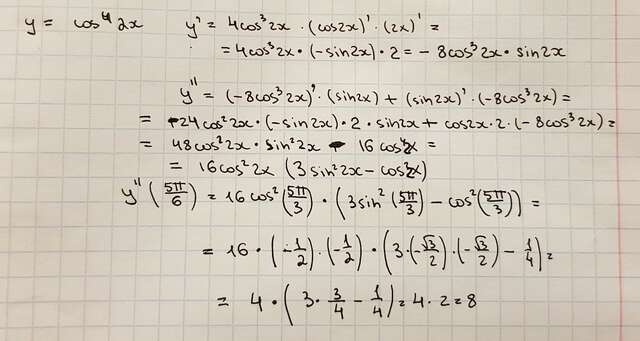 y = cos⁴2x y' = 4cos³2x · (cos2x)' · (2x)' =
= 4cos³2x · (-sin2x) · 2 = - 8cos³2x · sin2x
y'' = (-8cos³2x)' · (sin2x) + (sin2x)' · (-8cos³2x) =
= -24cos²2x · (-sin2x) · 2 · sin2x + cos2x · 2 · (-8cos³2x) =
= 48cos²2x · sin²2x - 16cos⁴2x =
= 16cos²2x (3sin²2x - cos²2x)
y''(5π/6) = 16cos²(5π/3) · (3sin²(5π/3) - cos²(5π/3)) =
= 16 · (-1/2) · (-1/2) · (3 · (-√3/2) · (-√3/2) - 1/4) =
= 4 · (3 · 3/4 - 1/4) = 4 · 2 = 8